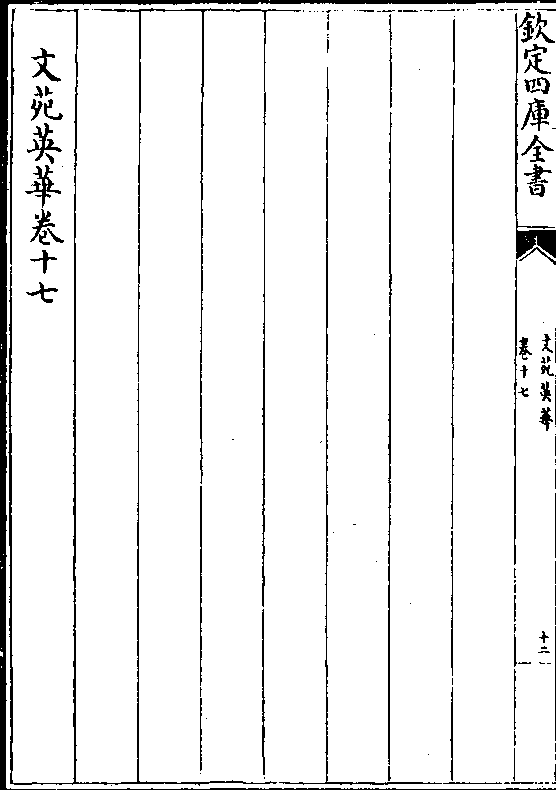 欽定四庫全書
文苑英華
卷十七
十二
文苑英華卷十七